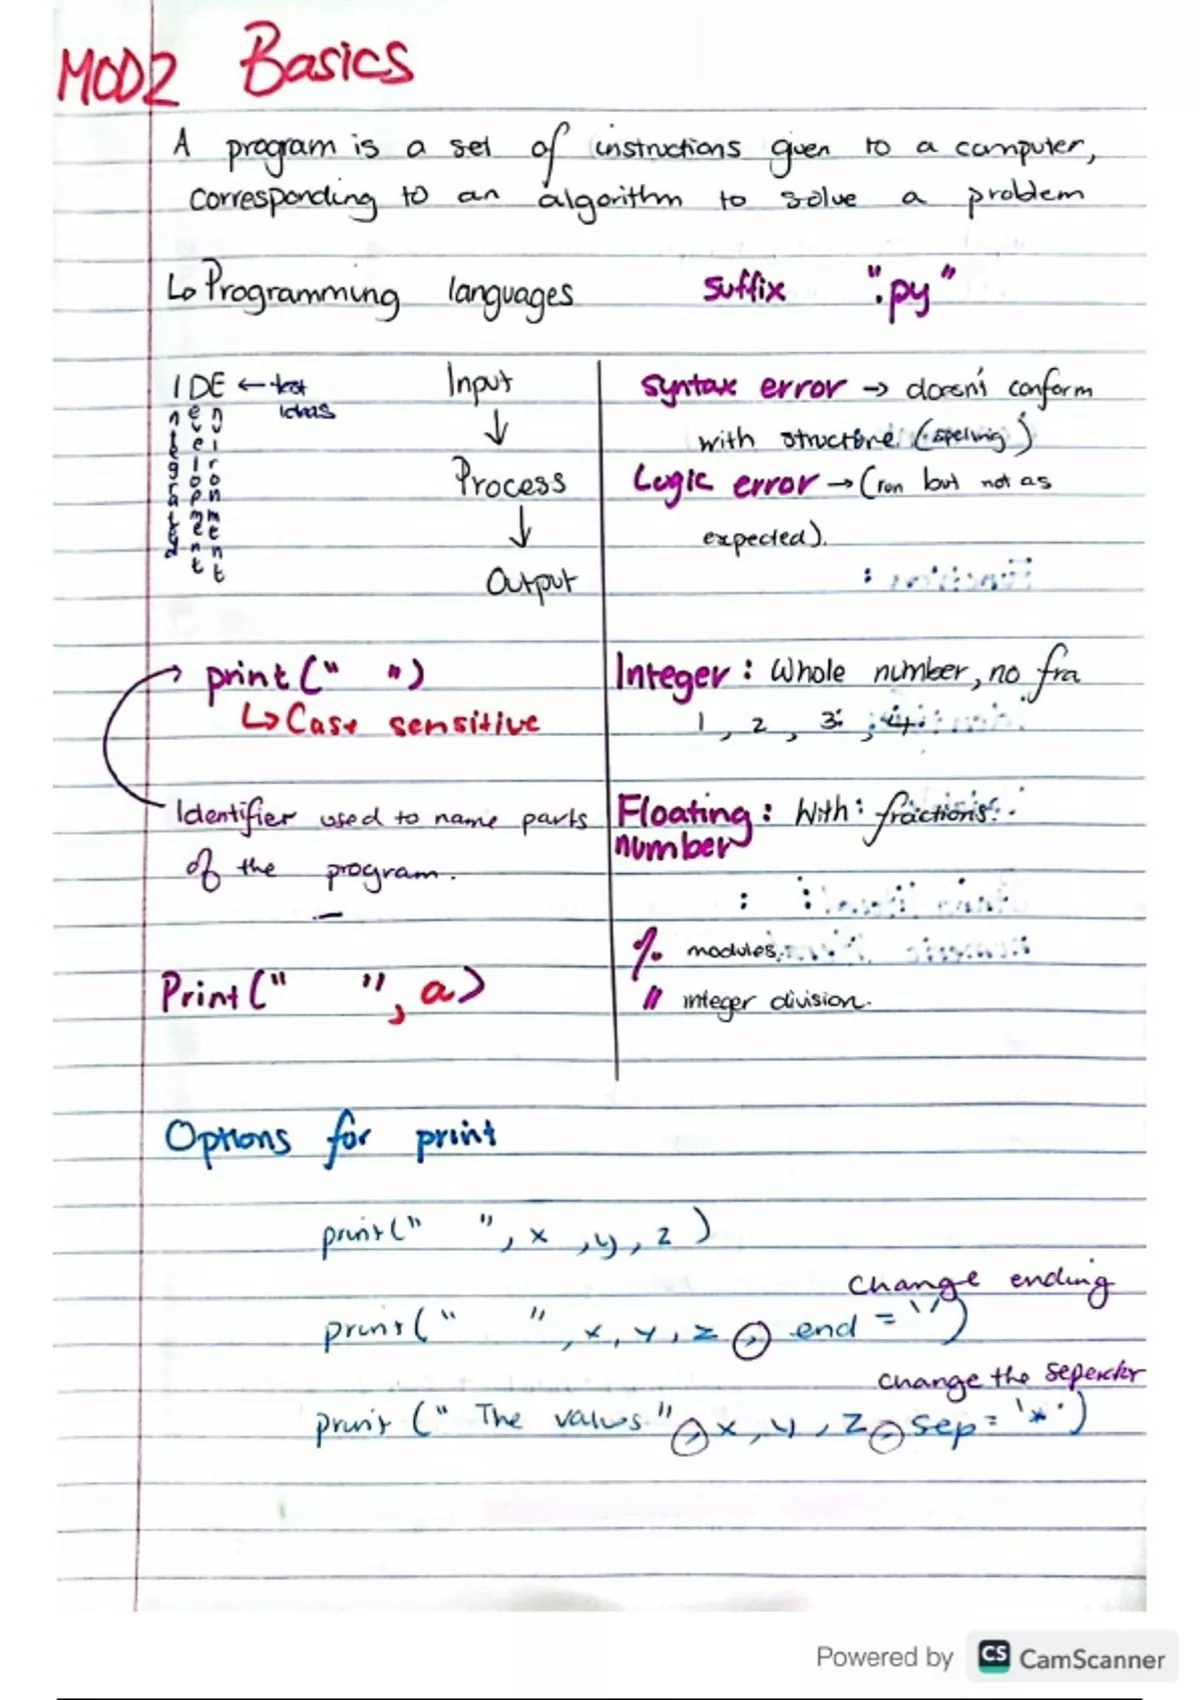 MOD2 Basics
A program is a set of instructions given to a computer,
corresponding to an algorithm to solve a problem
↳ Programming languages suffix ".py"
IDE ← test ideas
Integrated
Development
Environment
Input
↓
Process
↓
Output
print(" ")
↳ Case sensitive
Identifier used to name parts
of the program.
Print(" ", a)
syntax error → doesn't conform
with structure (spelling)
Logic error → (run but not as
expected).
Integer: Whole number, no fra
1, 2, 3, 4
Floating: With fractions.
number
% modules
// integer division.
Options for print
print(" ", x, y, z)
change ending
print(" ", x, y, z, end = '')
change the
print ("The values", x, y, z, sep = '*')
Powered by CS CamScanner